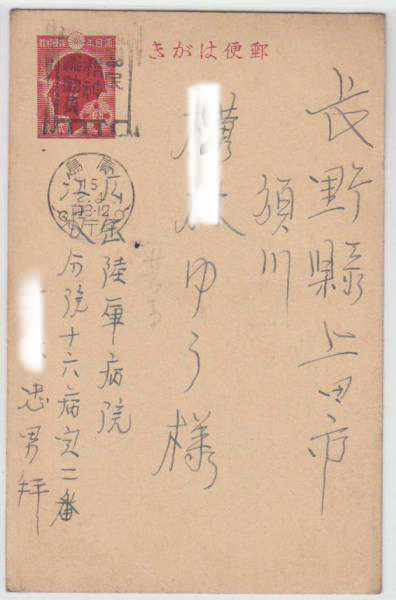 郵便はがき
長野縣上田市
須川
ゆう様
広島陸軍病院
江波分院十六病室二番
忠男拝